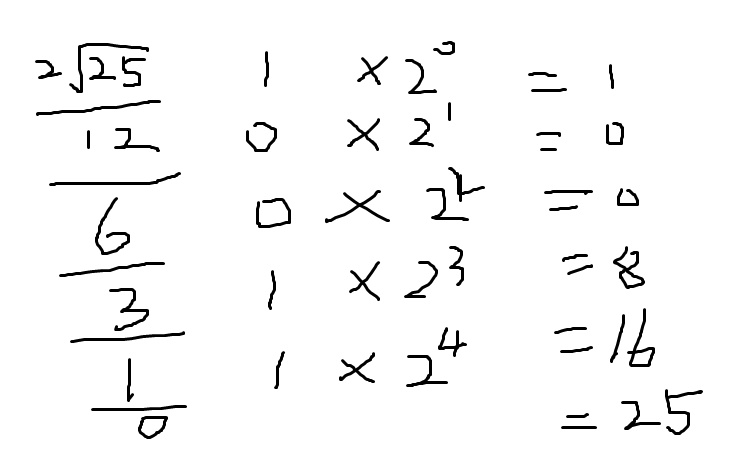 2√25 1 × 2⁰ = 1
12 0 × 2¹ = 0
6 0 × 2² = 0
3 1 × 2³ = 8
1 1 × 2⁴ = 16
0 = 25